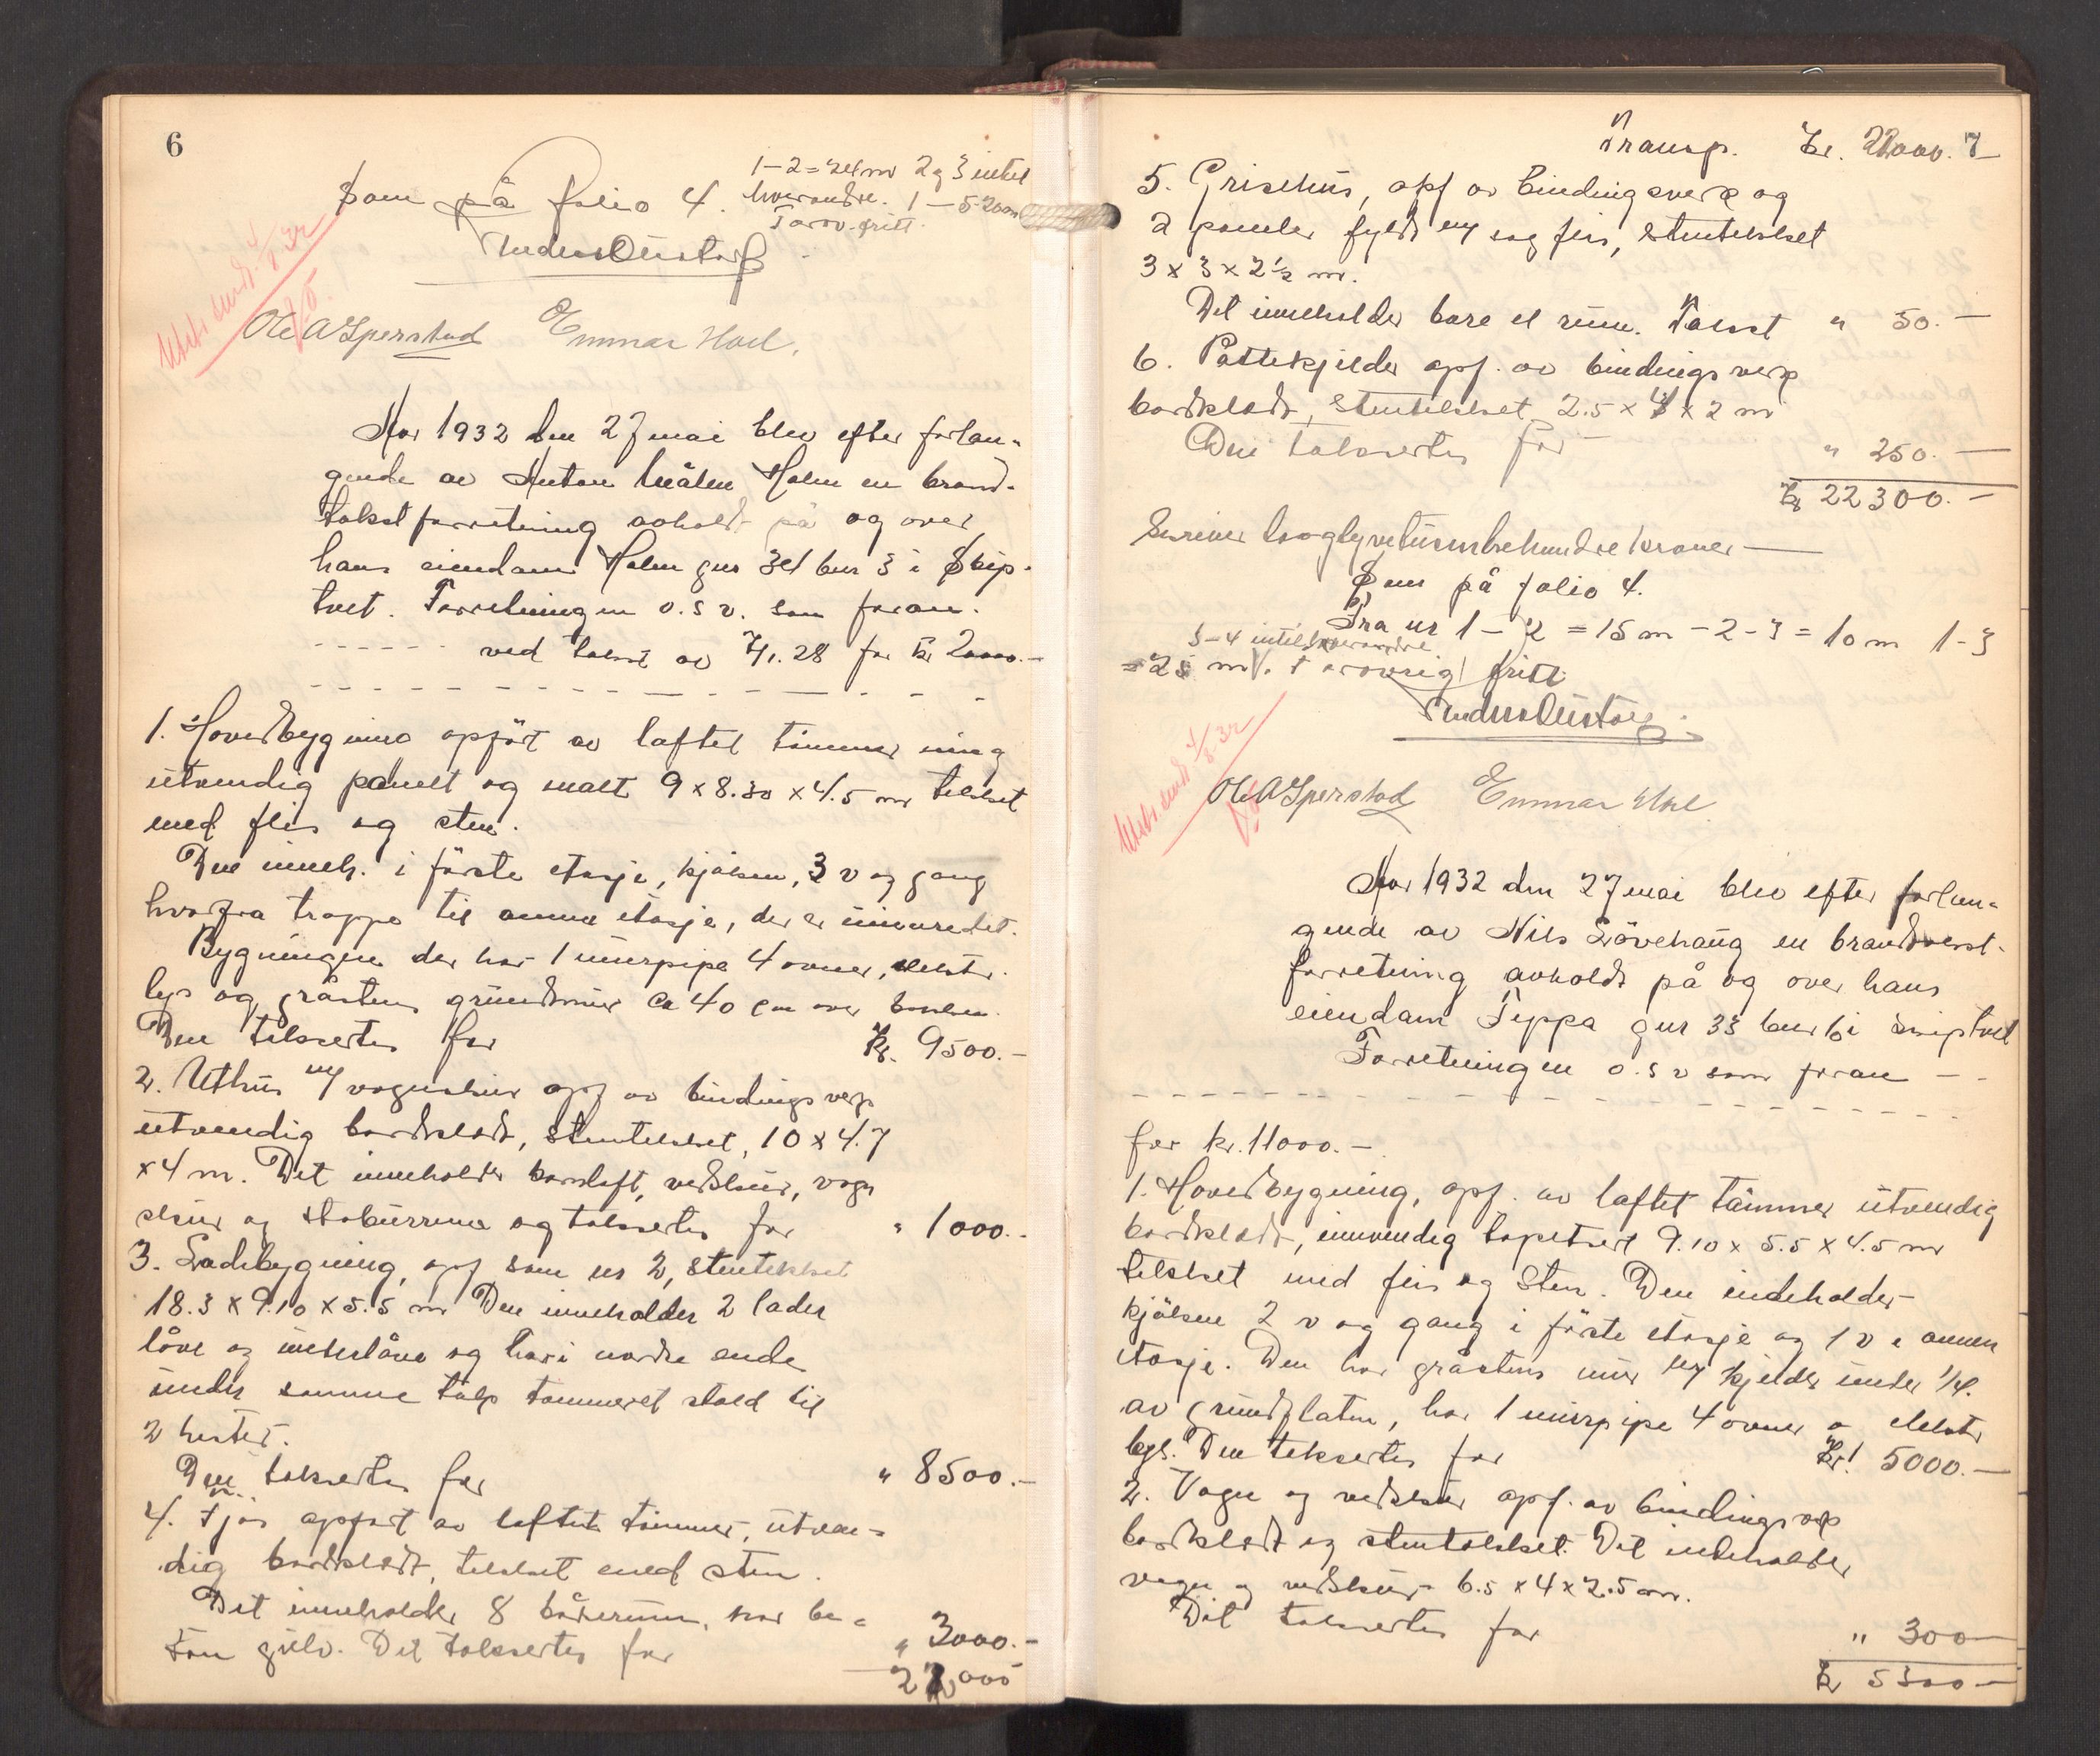 6
Som på folio 4.
1-2=24m 2 og 3 intil
hverandre. 1-5-20m
Forøv. fritt.
Utskr. sendt 4/8 32
Ole A Sperstad Emmar Hoel.
Aar 1932 den 27 mai blev efter forlan-
gende av Anton Holm en brand-
takstforretning avholdt på og over
hans eiendom Holm gnr 34 bnr 3 i Skip-
tvet. Forretningen o.s.v. som foran.
ved takst av 7/1.28 for kr 20000.-
1. Hovedbygning opført av laftet tømmer
utvendig panelt og malt 9 x 8.30 x 4.5 m tekket
med flis og sten.
Den inneh. i første etasje, kjøkken, 3 v og gang
hvorfra trappe til annen etasje, der er uinnredet.
Bygningen der har 1 murpipe 4 ovner, elektr.
lys og gråstens grundmur ca 40 cm over bakken.
Den takseres for Kr. 9500.-
2. Uthus m/ vognskur opf av bindingsverk
utvendig bordklædt, stentekket, 10 x 4.7
x 4 m. Det inneholder kornloft, vedskur, vogn
skur og stabursrum og takseres for " 1000.-
3. Ladebygning, opf som nr 2, stentekket
18.3 x 9.10 x 5.5 m Den inneholder 2 lader
låve og underlåve og har i nordre ende
under samme tak tømmeret stald til
2 hester.
Den takseres for " 8500.-
4. Fjøs opført av laftet tømmer, utven-
dig bordklædt, tekket med sten.
Det inneholder 8 båserum, har be-
ton gulv. Det takseres for " 3000.-
22,000
7
Transp. Kr. 22000.-
5. Grisehus, opf av bindingsverk og
2 paneler fyldt m/ sagflis, stentekket
3 x 3 x 2½ m.
Det inneholder bare et rum. Takst " 50.-
6. Pottekjelder opf. av bindingsverk
bordklædt, stentekket 2.5 x 4 x 2 m
Den takseres for " 250.-
Kr 22300.-
Skriver toogtyvetusentrehundre kroner
Som på folio 4.
Fra nr 1-2 = 15 m - 2-3 = 10 m 1-3
3-4 intil hverandre
= 25 m. Forøvrig fritt
Utskr. sendt 4/8 32
Ole A Sperstad Emmar Hoel.
Aar 1932 den 27 mai blev efter forlan-
gende av Nils Løvehaug en brandtakst-
forretning avholdt på og over hans
eiendom Teppa gnr 33 bnr 6 i Skiptvet
Forretningen o.s.v som foran -
for kr. 11000.-
1. Hovedbygning, opf. av laftet tømmer utvendig
bordklædt, innvendig tapetsert 9.10 x 5.5 x 4.5 m
tekket med flis og sten. Den indeholder
kjøkken 2 v og gang i første etasje og 1 v i annen
etasje. Den har gråstens mur m/ kjelder under 1/4.
av grundflaten, har 1 murpipe 4 ovner og elektr
lys. Den takseres for Kr. 5000.-
2. Vogn og vedskur opf. av bindingsverk
bordklædt og stentekket. Det indeholder
vogn og vedskur 6.5 x 4 x 2.5 m.
Det takseres for " 300-
Kr 5300-